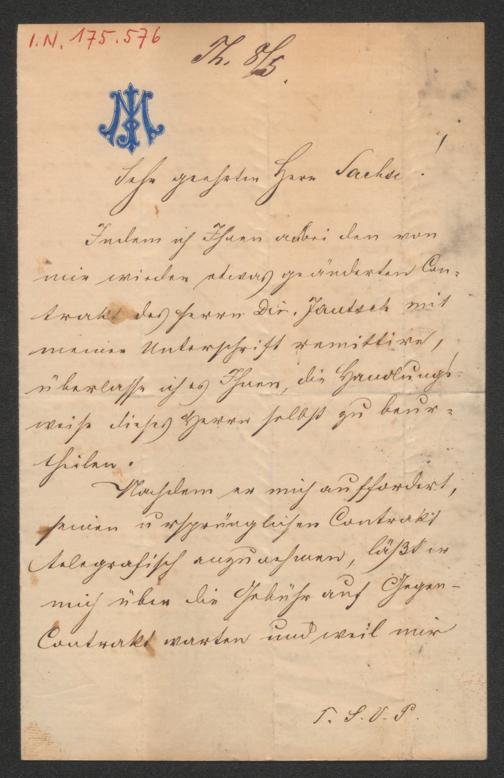 I.N. 175.576
Th. 8/5.
Sehr geehrter Herr Sachse!
Indem ich Ihnen anbei den von
mir wieder etwas geänderten Con-
trakt des Herrn Dir. Jantsch mit
meiner Unterschrift remittire,
überlasse ich es Ihnen, die Handlungs-
weise dieses Herrn selbst zu beur-
theilen.
Nachdem er mich auffordert,
seinen ursprünglichen Contrakt
telegrafisch anzunehmen, läßt er
mich über die Gebühr auf Gegen-
Contrakt warten und weil mir
T. S. V. P.